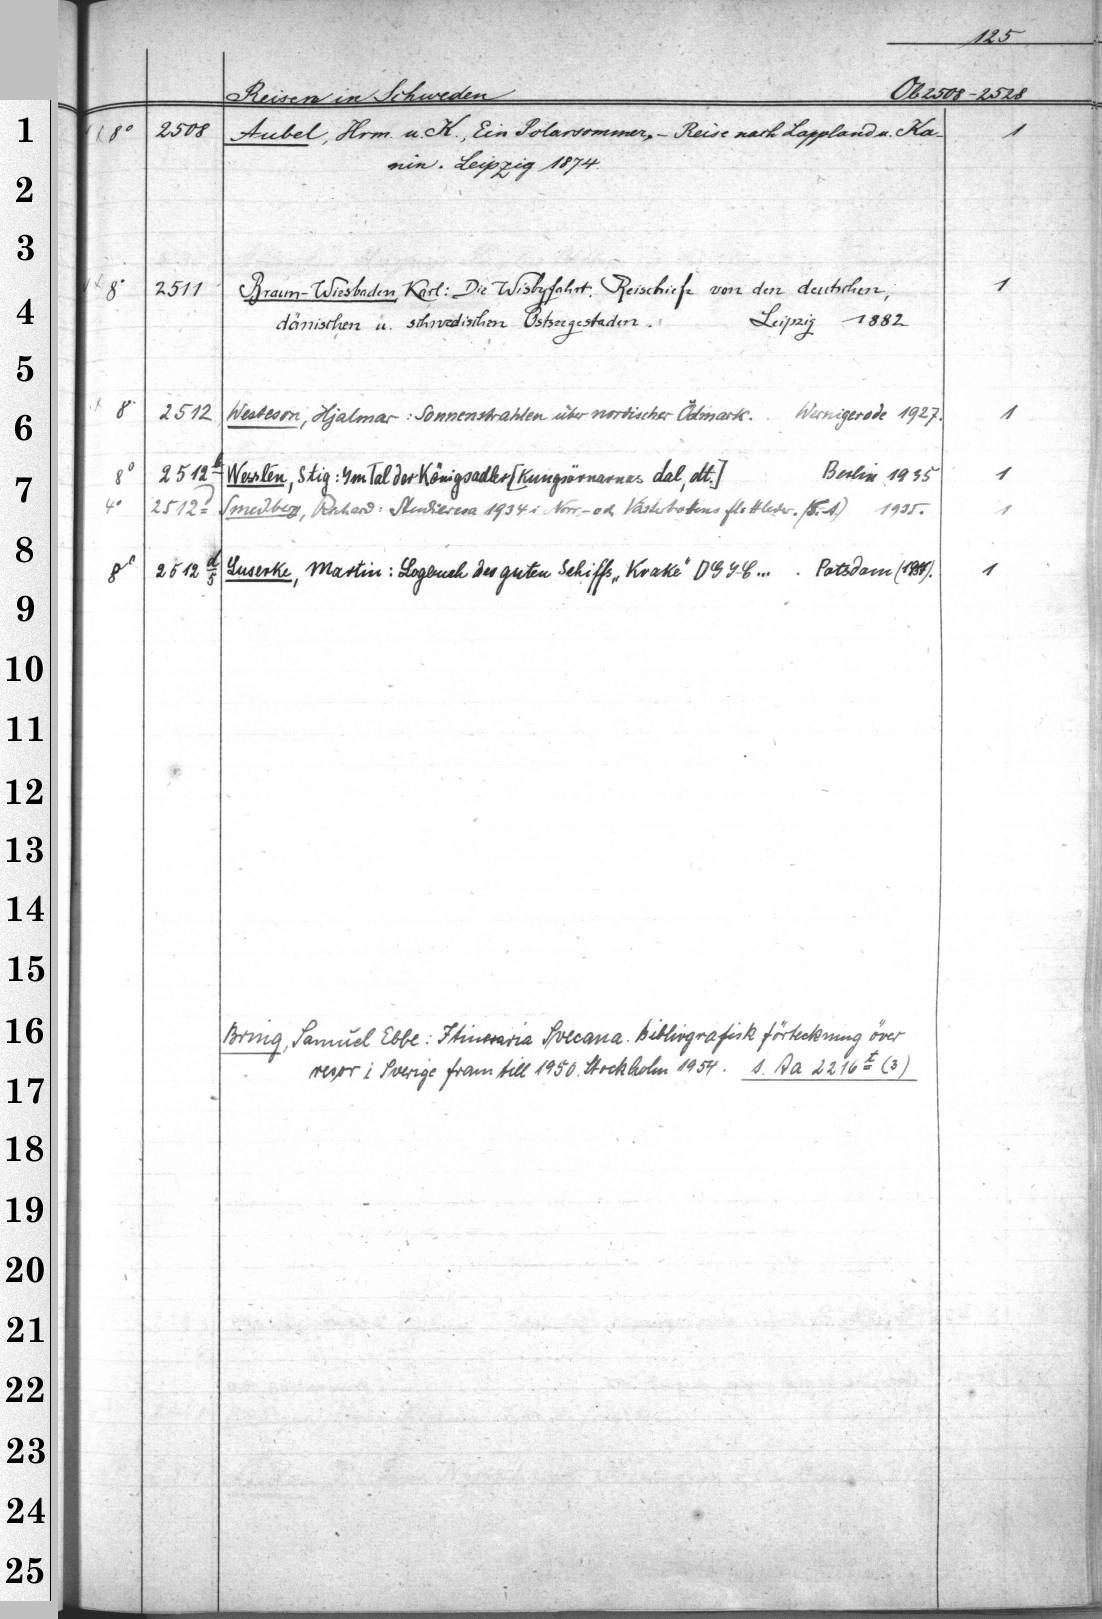 125
Reisen in Schweden Ob 2508-2528
1 8° 2508 Aubel, Hrm. u. K., Ein Polarsommer, - Reise nach Lappland u. Ka- 1
2 nin. Leipzig 1874.
3
4 8° 2511 Braun-Wiesbaden, Karl: Die Wisbyfahrt. Reisebriefe von den deutschen, 1
dänischen u. schwedischen Ostseegestaden. Leipzig 1882
5
6 8° 2512 Westeson, Hjalmar: Sonnenstrahlen über nordischer Ödmark. Wernigerode 1927. 1
7 8° 2512 b Wesslén, Stig: Im Tal der Königsadler [Kungsörnarnas dal, dt.] Berlin 1935 1
4° 2512 Smedberg, Richard: Studieresa 1934 i Norr- och Västerbottens flottleder. (S.-A.) 1935. 1
8
8° 2512 d/5 Luserke, Martin: Logbuch des guten Schiffs "Krake" DGJC... Potsdam 1
9
10
11
12
13
14
15
16 Bring, Samuel Ebbe: Itineraria Svecana. Bibliografisk förteckning över
resor i Sverige fram till 1950. Stockholm 1954. s. Aa 2216 t (3)
17
18
19
20
21
22
23
24
25